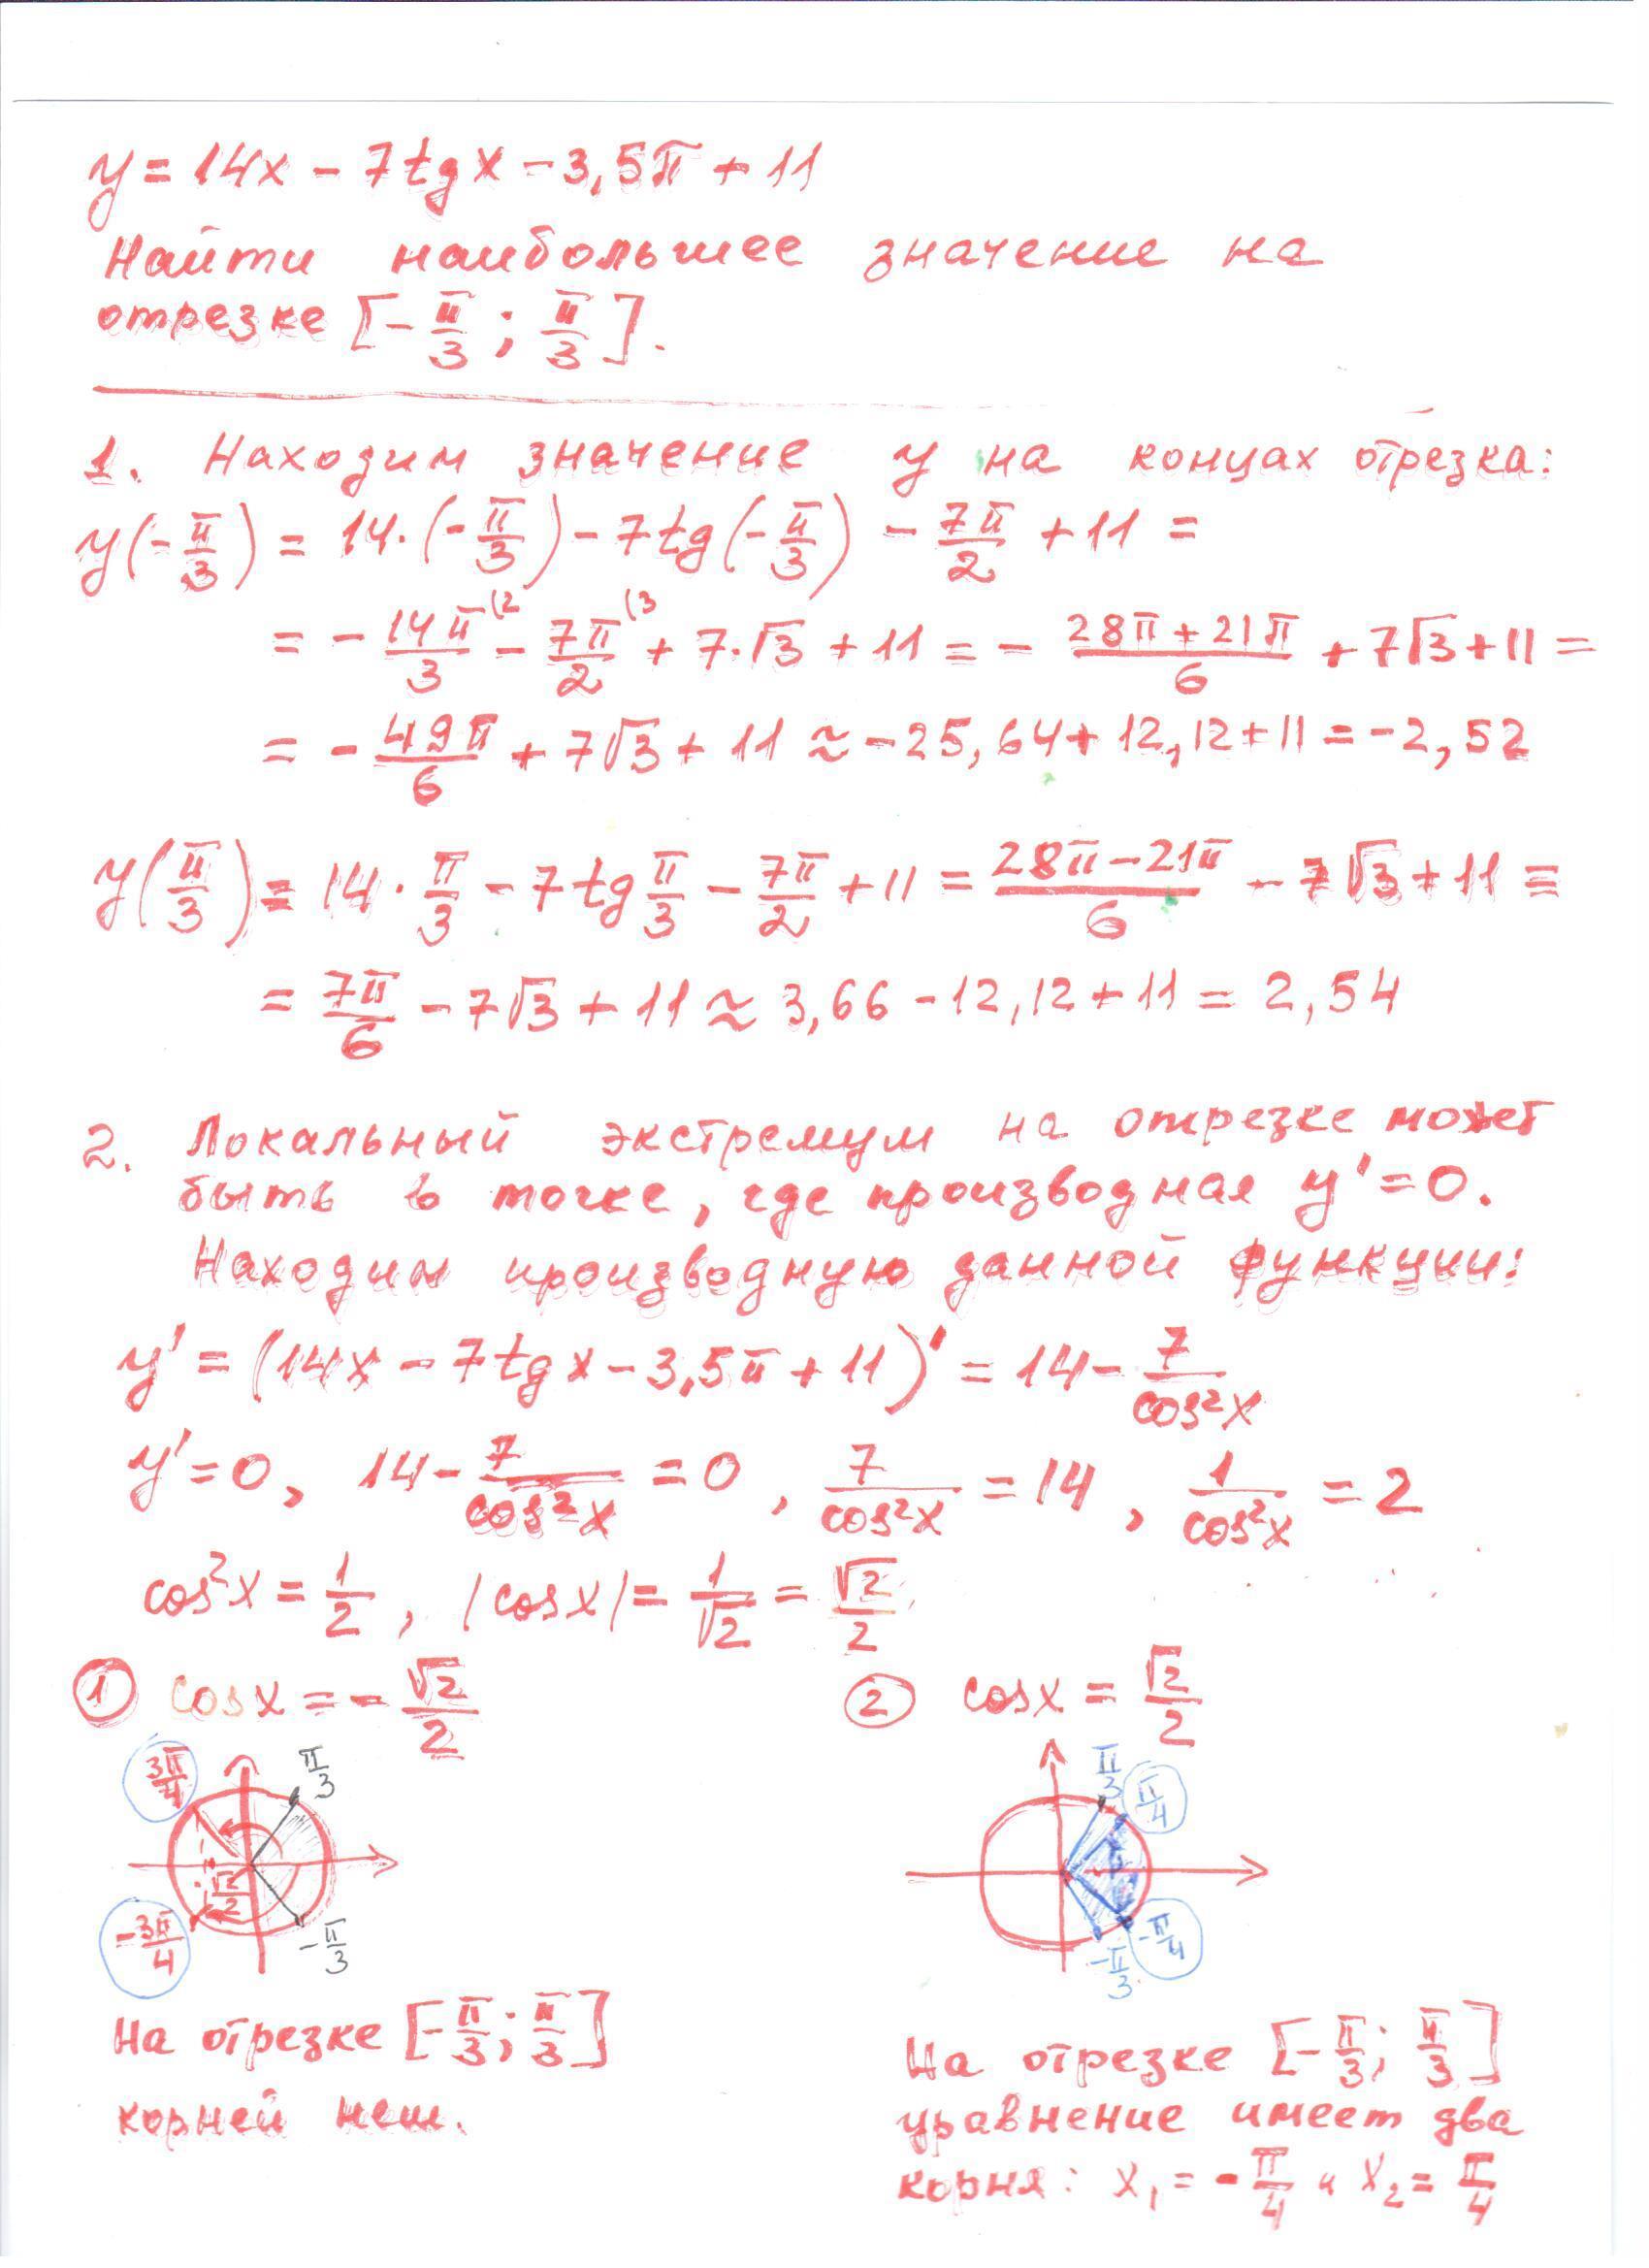 y = 14x - 7tgx - 3,5π + 11
Найти наибольшее значение на
отрезке [-π/3; π/3].
1. Находим значение y на концах отрезка:
y(-π/3) = 14·(-π/3) - 7tg(-π/3) - 7π/2 + 11 =
= - 14π/3 (2 - 7π/2 (3 + 7·√3 + 11 = - (28π + 21π)/6 + 7√3 + 11 =
= - 49π/6 + 7√3 + 11 ≈ -25,64 + 12,12 + 11 = -2,52
y(π/3) = 14·π/3 - 7tg π/3 - 7π/2 + 11 = (28π - 21π)/6 - 7√3 + 11 =
= 7π/6 - 7√3 + 11 ≈ 3,66 - 12,12 + 11 = 2,54
2. Локальный экстремум на отрезке может
быть в точке, где производная y' = 0.
Находим производную данной функции:
y' = (14x - 7tgx - 3,5π + 11)' = 14 - 7/cos²x
y' = 0, 14 - 7/cos²x = 0, 7/cos²x = 14, 1/cos²x = 2
cos²x = 1/2, |cosx| = 1/√2 = √2/2
① cosx = - √2/2
3π/4 π/3
-√2/2
-3π/4 -π/3
На отрезке [-π/3; π/3]
корней нет.
② cosx = √2/2
π/3 π/4
-π/3 -π/4
На отрезке [-π/3; π/3]
уравнение имеет два
корня: x₁ = -π/4 и x₂ = π/4